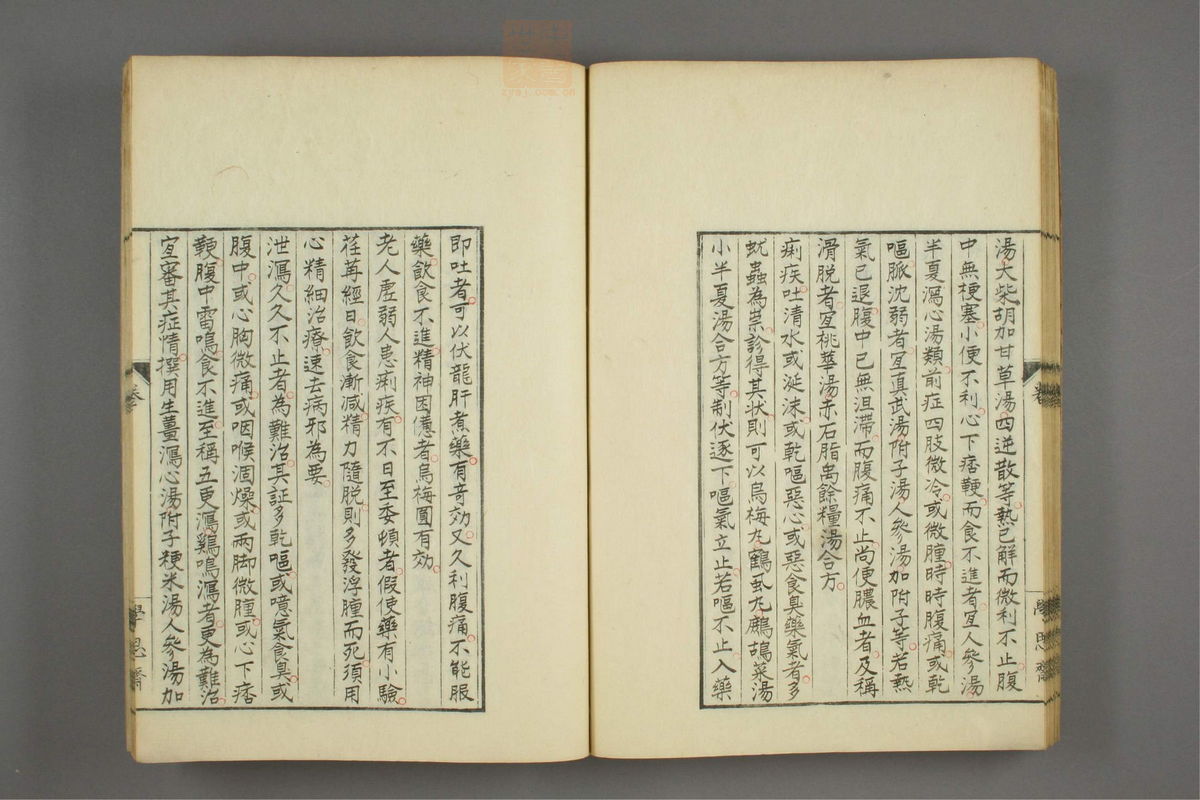 湯大柴胡加甘草湯四逆散等熱已解而微利不止腹
中無梗塞小便不利心下痞鞕而食不進者宜人參湯
半夏瀉心湯類前症四肢微冷或微腫時時腹痛或乾
嘔脈沈弱者宜真武湯附子湯人參湯加附子等若熱
氣已退腹中已無沮滯而腹痛不止尚便膿血者及稱
滑脫者宜桃華湯赤石脂禹餘糧湯合方
痢疾吐清水或涎沫或乾嘔惡心或惡食臭藥氣者多
蚘蟲為祟診得其狀則可以烏梅丸鶴虱丸鷓鴣菜湯
小半夏湯合方等制伏逐下嘔氣立止若嘔不止入藥
即吐者可以伏龍肝煮藥有奇効又久利腹痛不能服
藥飲食不進精神困憊者烏梅圓有効
老人虛弱人患痢疾有不日至委頓者假使藥有小驗
荏苒經日飲食漸減精力隨脫則多發浮腫而死須用
心精細治療速去病邪為要
泄瀉久久不止者為難治其証多乾嘔或噫氣食臭或
腹中或心胸微痛或咽喉涸燥或兩脚微腫或心下痞
鞕腹中雷鳴食不進至稱五更瀉鷄鳴瀉者更為難治
宜審其症情撰用生薑瀉心湯附子粳米湯人參湯加
卷
學思齋
zysj.com.cn